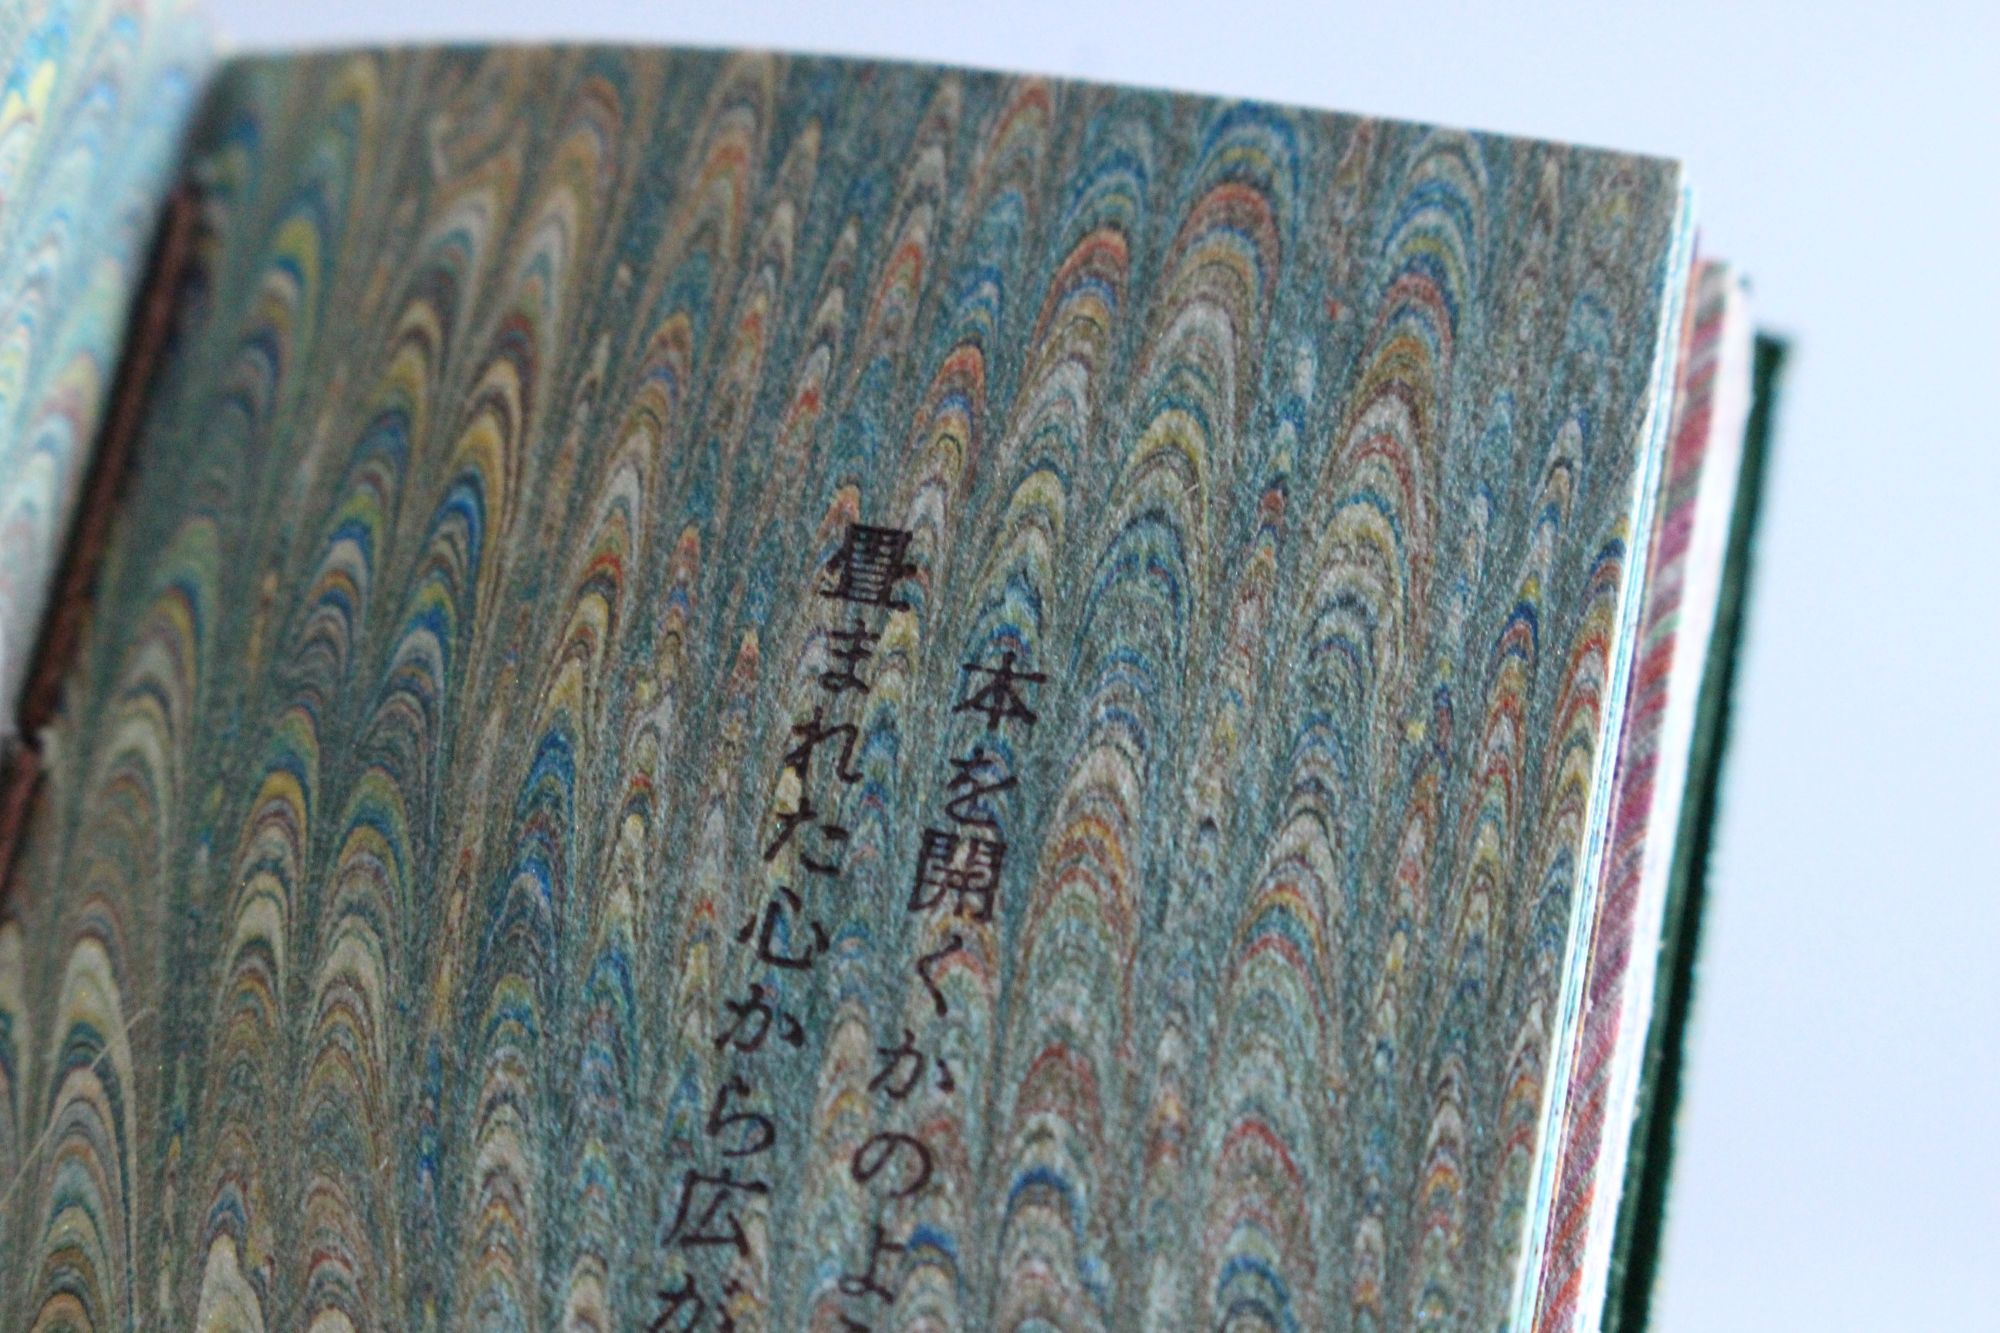 本を開くかのよ
畳まれた心から広が